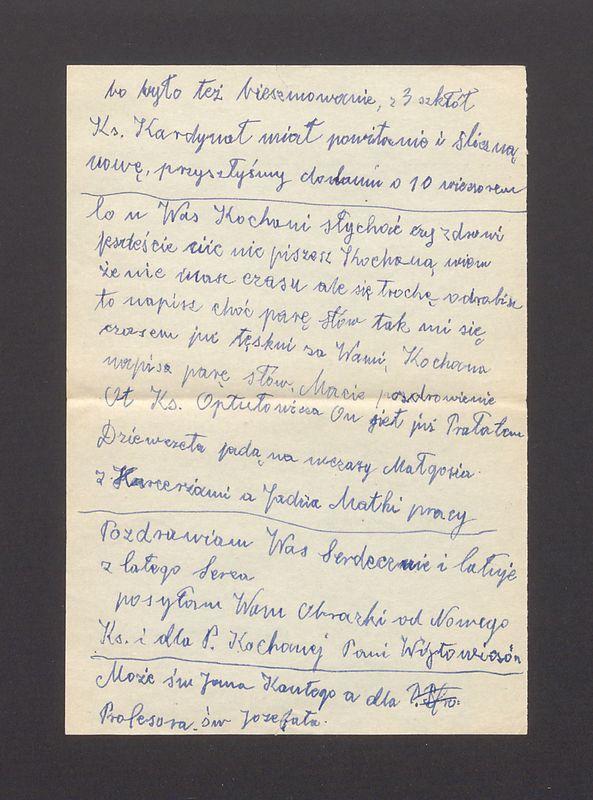 bo było też bieszmowanie, z 3 szkół
Ks. Kardynał miał powitanie i śliczną
mowę, przyszłyśmy do domu o 10 wieczorem
Co u Was Kochani słychać czy zdrowi
jesteście nic nie piszesz Kochaną wiem
że nie masz czasu ale się trochę odrabisz
to napisz choć parę słów tak mi się
czasem już tęskni za Wami, Kochana
napisz parę słów. Macie pozdrowienie
Ot Ks. Optułowicza On jest już Prałatem
Dziewczeta jadą na wczasy Małgosia
z Harcerzami a Jadzia Matki pracy
Pozdrawiam Was Serdecznie i całuje
z całego Serca
posyłam Wam Obrazki od Nowego
Ks. i dla P. Kochanej Pani
Może św Jana Kantego a dla
Profesora św Jozefata.